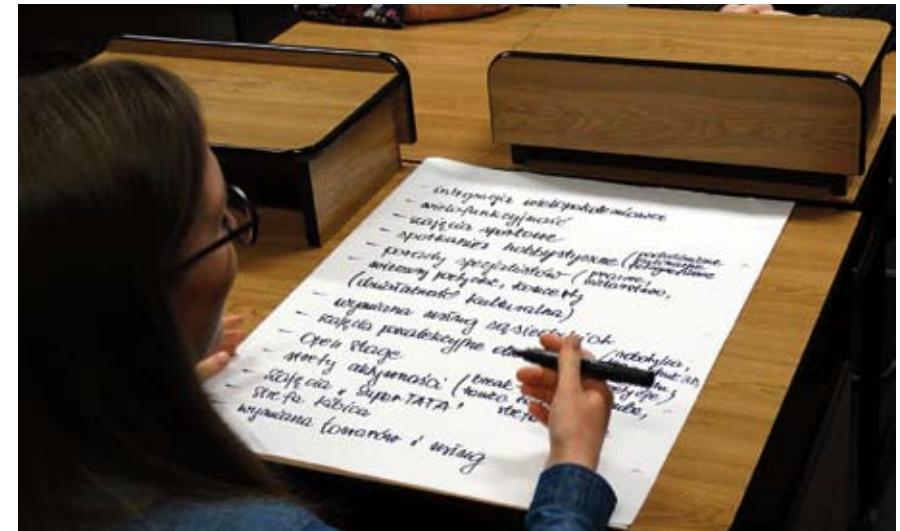 - integracja wielopokoleniowa
- wielofunkcyjność
- zajęcia sportowe
- spotkania hobbystyczne (
- porady specjalistów (prawne,
- wieczory poetyckie, koncerty
(działalność kulturalna)
- wymiana usług sąsiedzkich
- zajęcia pozalekcyjne (robotyka,
- Open stage
- strefy aktywności (break
- zajęcia "Super TATA"
- strefa kibica
- wymiana towarów i usług